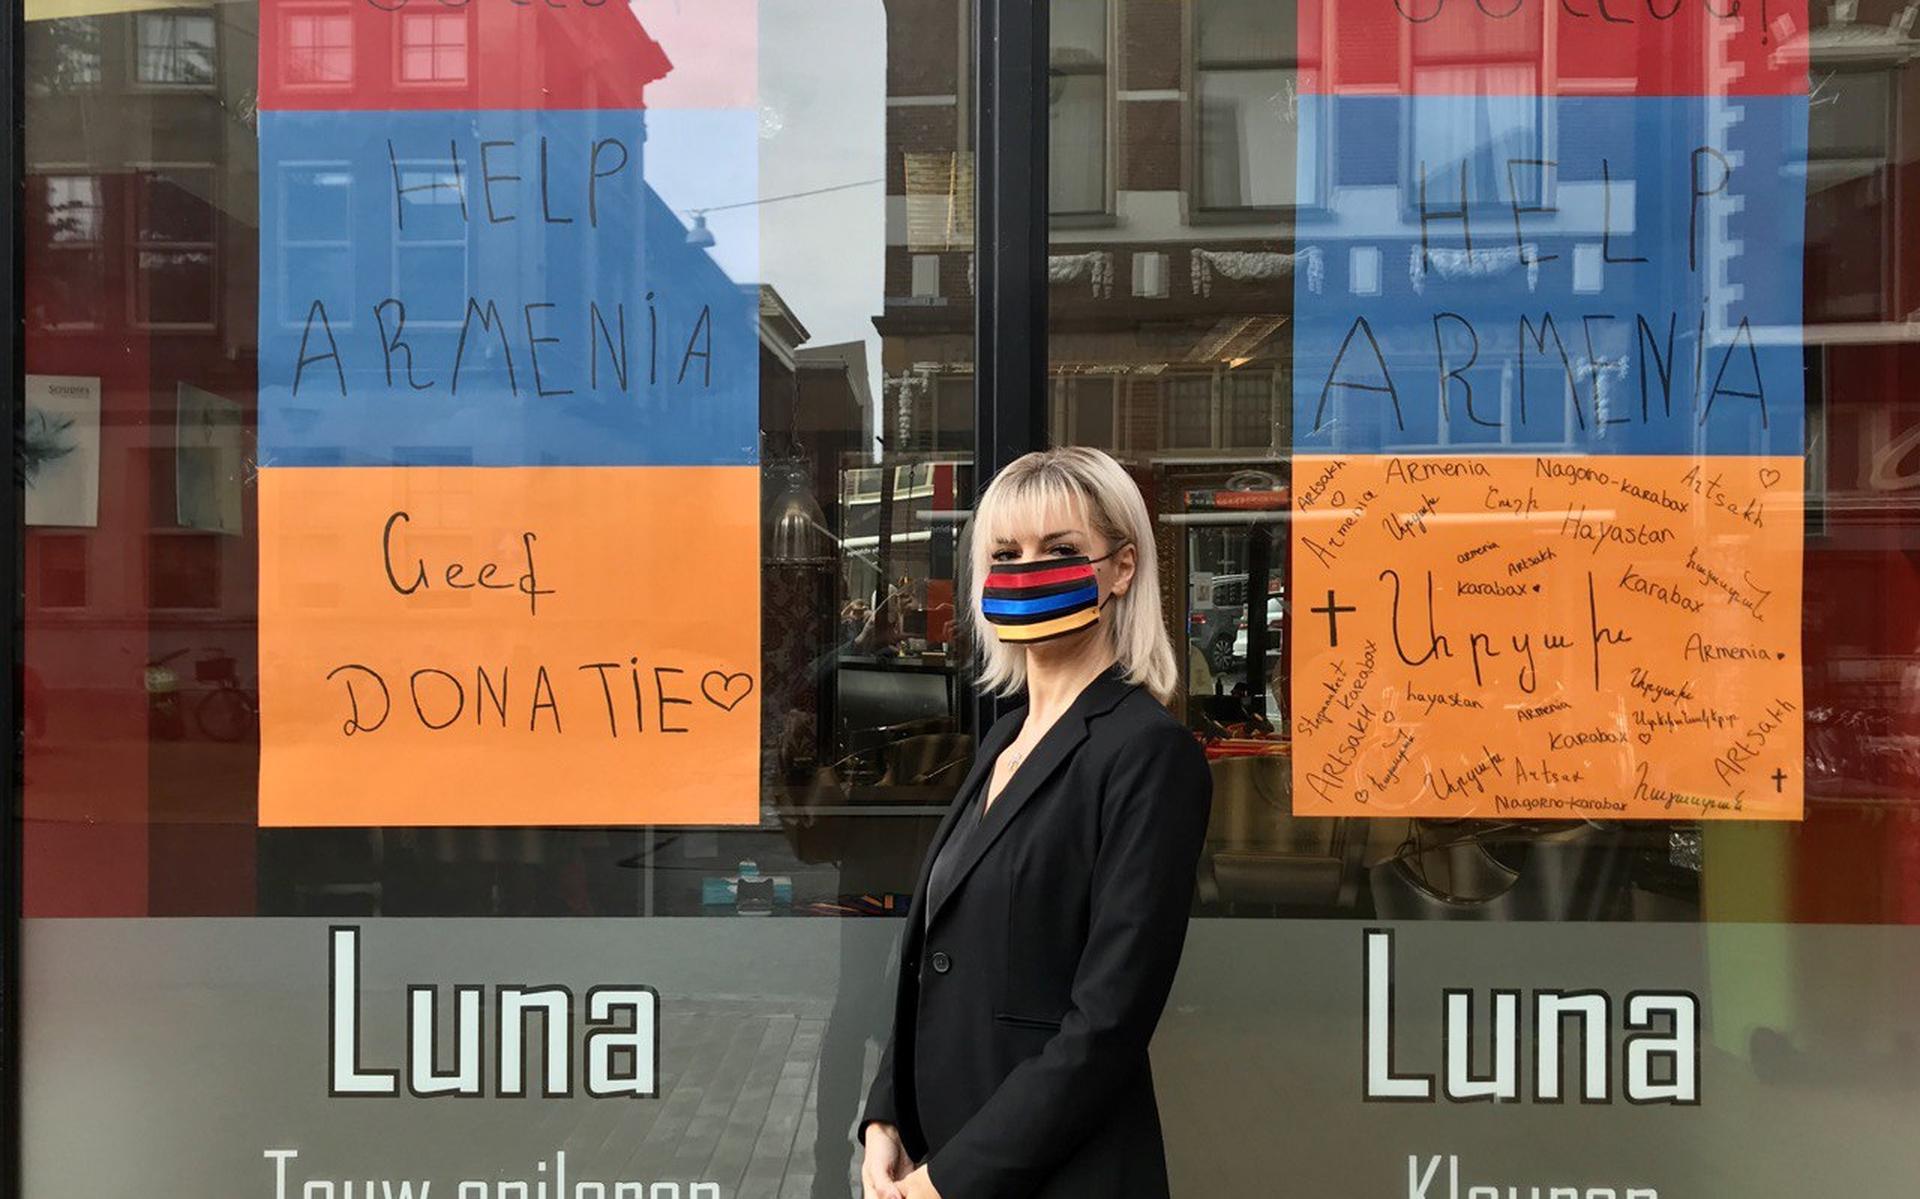 HELP
ARMENiA
Geef
DONATiE
HELP
ARMENiA
Artsakh
Armenia
Nagorno-karabax
Artsakh
Armenia
Արցախ
Շուշի
Hayastan
armenia
Artsakh
karabax
karabax
հայաստան
Արցախ
Armenia
Stepanakert
karabax
hayastan
Armenia
Արցախ
Artsakh
Karabax
Artsakh
Արցախ
Artsax
Nagorno-karabax
հայաստան
Scruples
Luna
Touw epileren
Luna
Kleuren